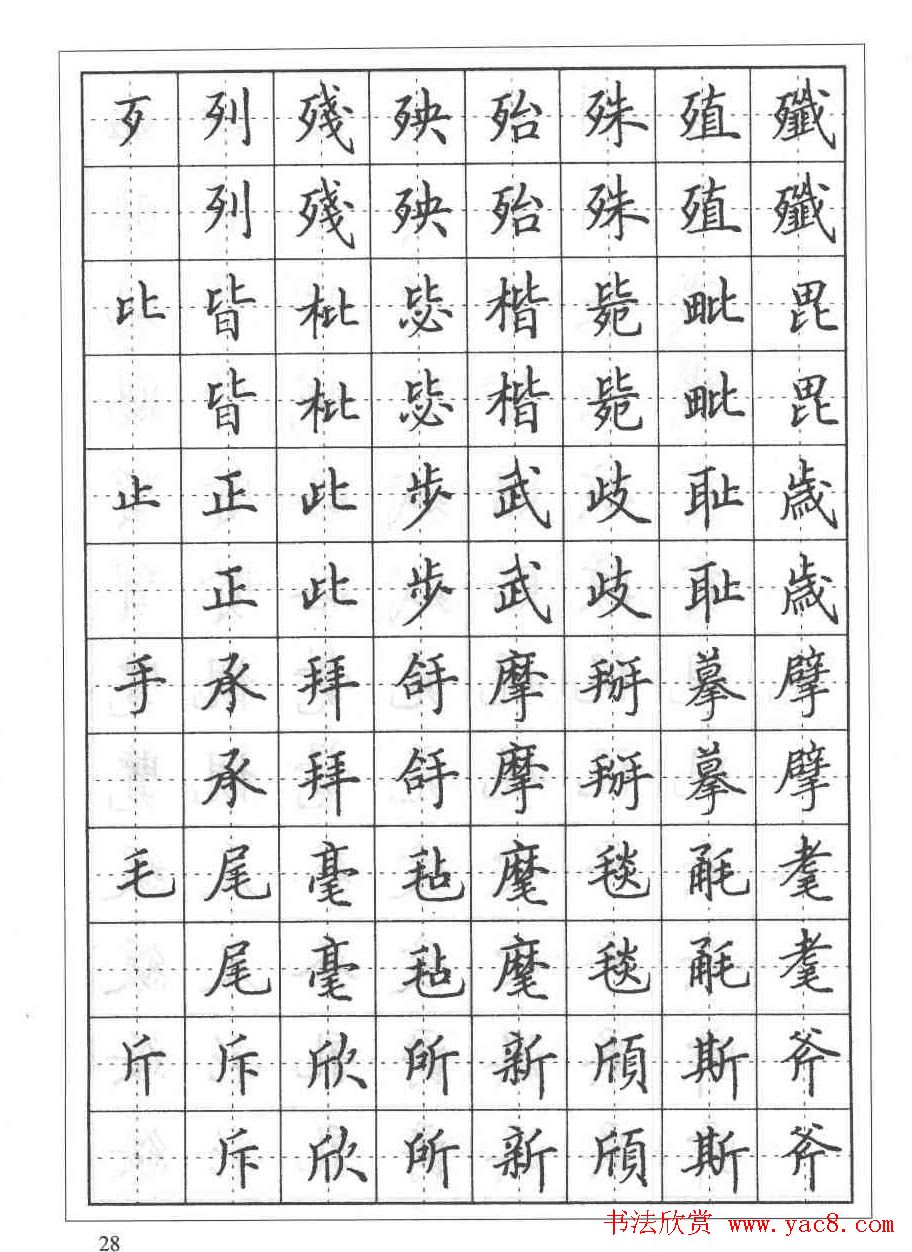 歹 列 殘 殃 殆 殊 殖 殲
列 殘 殃 殆 殊 殖 殲
比 皆 枇 毖 楷 毙 毗 毘
皆 枇 毖 楷 毙 毗 毘
止 正 此 步 武 歧 耻 歳
正 此 步 武 歧 耻 歳
手 承 拜 摩 掰 摹 擘
承 拜 摩 掰 摹 擘
毛 尾 毫 毡 麾 毯 毪 耄
尾 毫 毡 麾 毯 耄
斤 斥 欣 所 新 頎 斯 斧
斥 欣 所 新 頎 斯 斧
书法欣赏 www.yac8.com
28